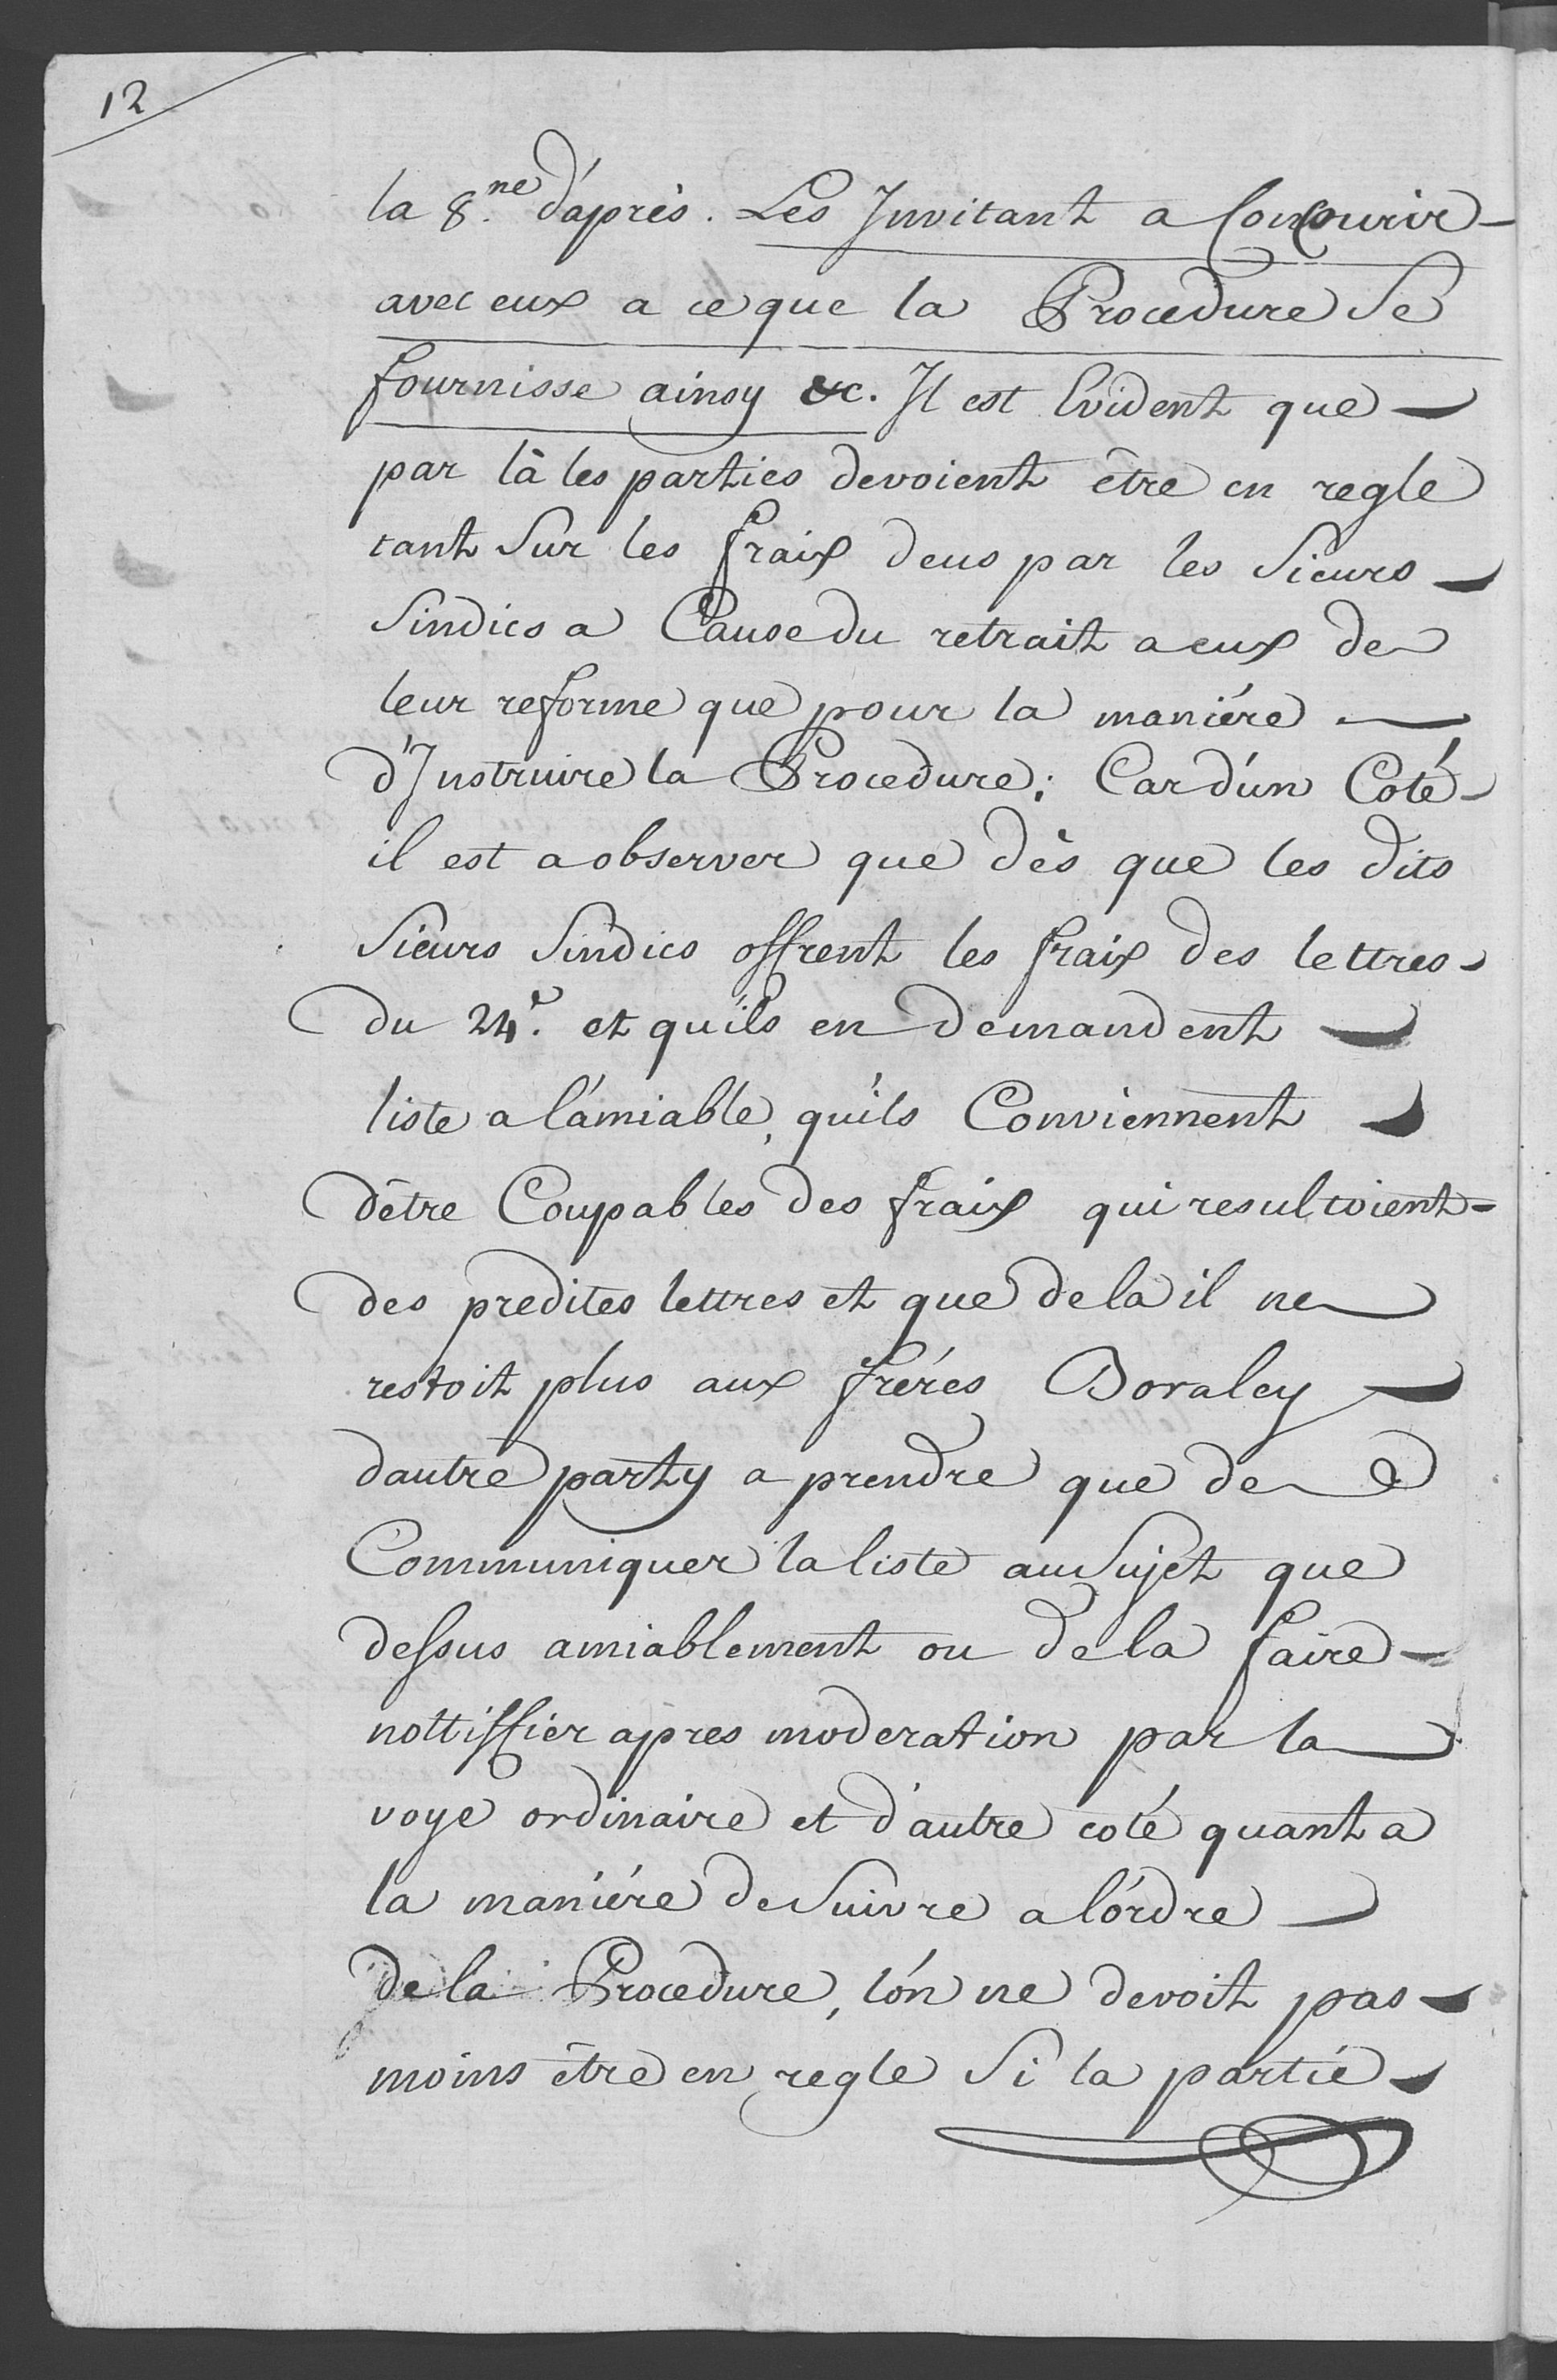 12
la 8.ne d'après. Les Invitant a Concourir
avec eux a ce que la Procedure Se
fournisse ainsy &c. Il est Evident que
par là les parties devoient être en regle
tant Sur les fraix deus par les Sieurs
Sindics a Cause du retrait a eux de
leur reforme que pour la maniére
d'Instruire la Procedure; Car d'un Coté
il est a observer que dès que les dits
Sieurs Sindics offrent les fraix des lettres
du 24.e et qu'ils en demandent
liste a l'amiable, qu'ils Conviennent
d'être Coupables des fraix qui resultoient
des predites lettres et que de la il ne
restoit plus aux fréres Dovaley
d'autre party a prendre que de
Communiquer la liste au Sujet que
dessus amiablement ou de la faire
nottiffier apres moderation par la
voye ordinaire et d'autre coté quant a
la maniére de Suivre a l'ordre
de la Procedure, l'on ne devoit pas
moins être en regle Si la partie